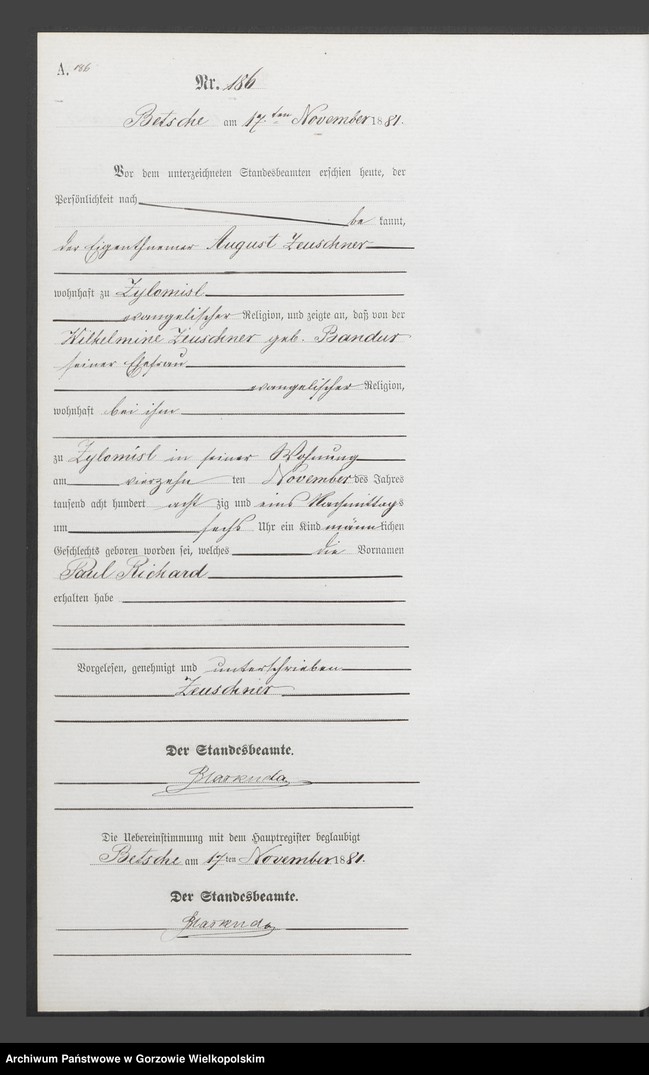 A. 186
Nr. 186
Betsche am 17ten November 1881.
Vor dem unterzeichneten Standesbeamten erschien heute, der
Persönlichkeit nach
be kannt,
der Eigenthuemer August Zeuschner
wohnhaft zu Zylomisl
evangelischer Religion, und zeigte an, daß von der
Wilhelmine Zeuschner geb. Bandur
seiner Ehefrau
evangelischer Religion,
wohnhaft bei ihm
zu Zylomisl in seiner Wohnung
am vierzehn ten November des Jahres
tausend acht hundert acht zig und eins Nachmittags
um sechs Uhr ein Kind männlichen
Geschlechts geboren worden sei, welches die Vornamen
Paul Richard
erhalten habe
Vorgelesen, genehmigt und unterschrieben
Zeuschner
Der Standesbeamte.
Die Uebereinstimmung mit dem Hauptregister beglaubigt
Betsche am 17ten November 1881.
Der Standesbeamte.
Archiwum Państwowe w Gorzowie Wielkopolskim